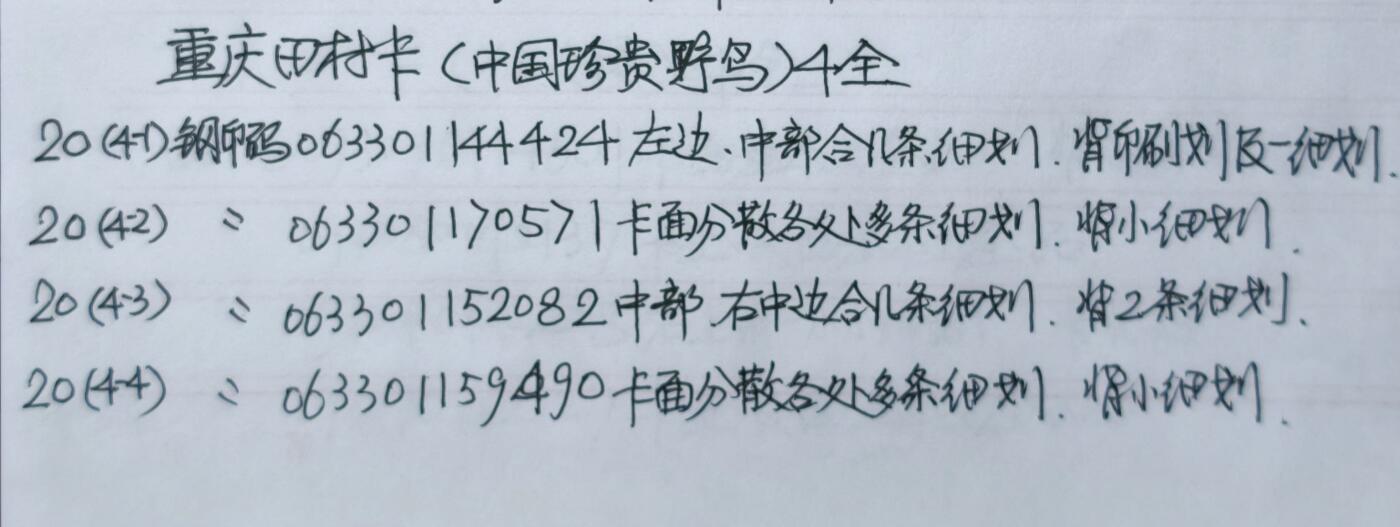 重庆田村卡(中国珍贵野鸟)4全
20(4-1)钢印码063301144424左边、中部合几条细划．背印刷划及一细划．
20(4-2) 〃 063301170571卡面分散各处多条细划．背小细划．
20(4-3) 〃 063301152082中部、右中边合几条细划．背2条细划．
20(4-4) 〃 063301159490卡面分散各处多条细划．背小细划．